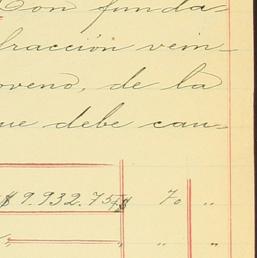 Con funda-
fracción vein-
noveno, de la
que debe cau-
$9.932.75 $ 70 "
" " "